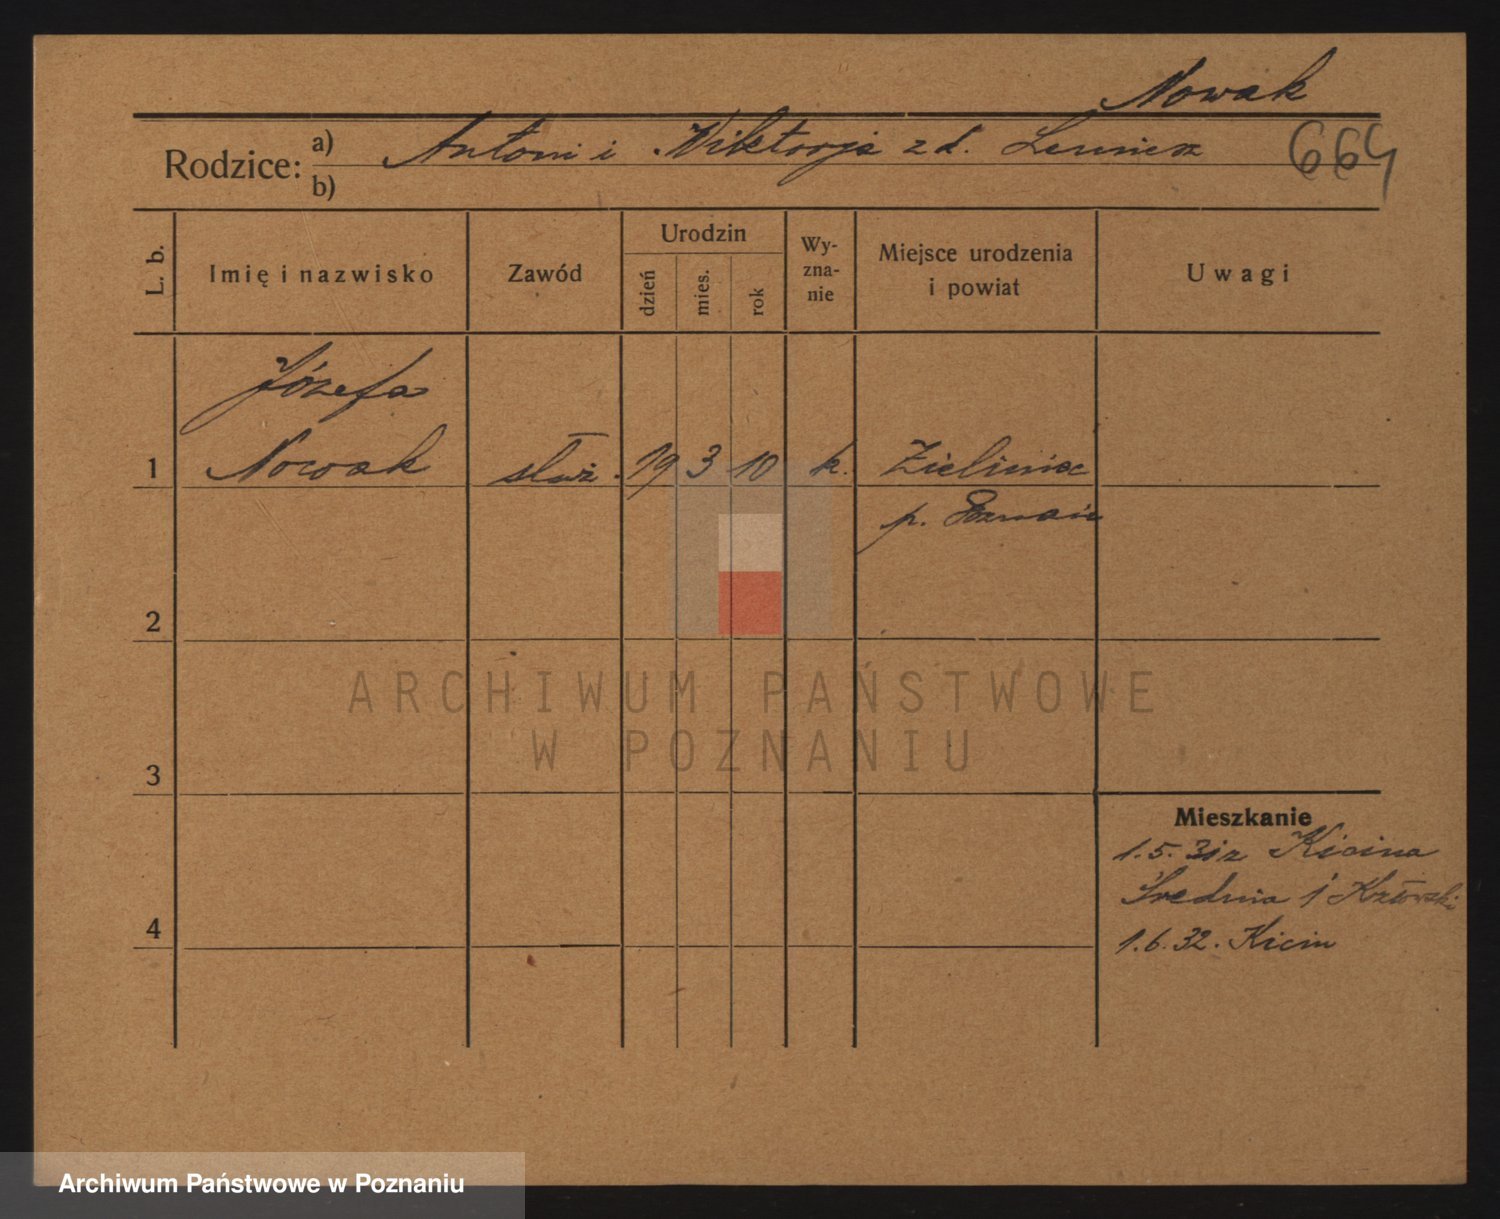 Nowak
Rodzice: a) Antoni i Wiktorja z d.
664
b)
L. b.
Imię i nazwisko
Zawód
Urodzin
dzień
mies.
rok
Wy-
zna-
nie
Miejsce urodzenia
i powiat
Uwagi
Józefa
1 Nowak służ. 19 3 10 k. Zieliniec
p. Poznań
2
ARCHIWUM PAŃSTWOWE
W POZNANIU
3
Mieszkanie
1.5.31 z Kicina
Średnia 1
4
1.6.32. Kicin
Archiwum Państwowe w Poznaniu